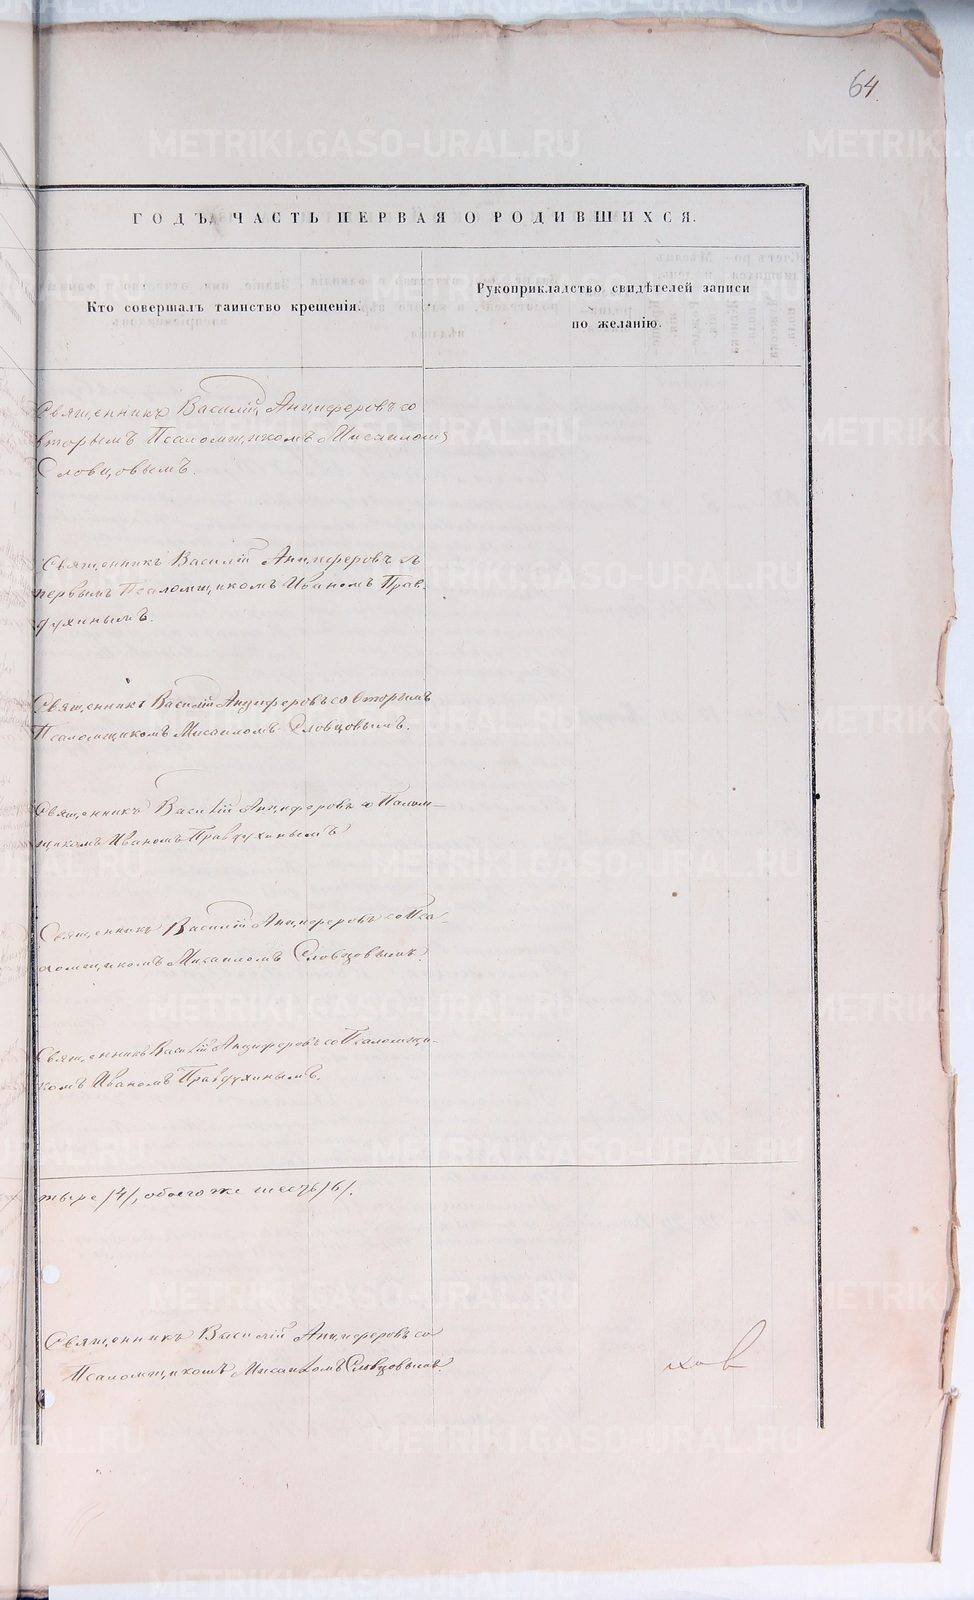 64.
ГОДЪ, ЧАСТЬ ПЕРВАЯ О РОДИВШИХСЯ.
Кто совершалъ таинство крещенія.
Рукоприкладство свидѣтелей записи
по желанію.
Священникъ Василій Анциферовъ со
вторымъ Псаломщикомъ Мисаиломъ
Словцовымъ.
Священникъ Василій Анциферовъ съ
первымъ Псаломщикомъ Иваномъ Прав-
духинымъ.
Священникъ Василій Анциферовъ со вторымъ
Псаломщикомъ Мисаиломъ Словцовымъ.
Священникъ Василій Анциферовъ со
щикомъ Иваномъ Правдухинымъ
Священникъ Василій Анциферовъ со Пса-
ломщикомъ Мисаиломъ Словцовымъ.
Священникъ Василій Анциферовъ со Псаломщи-
комъ Иваномъ Правдухинымъ.
тыре /4/, обоего же шесть /6/.
Священникъ Василій Анциферовъ со
Псаломщикомъ Мисаиломъ Словцовымъ.
ховъ
METRIKI.GASO-URAL.RU